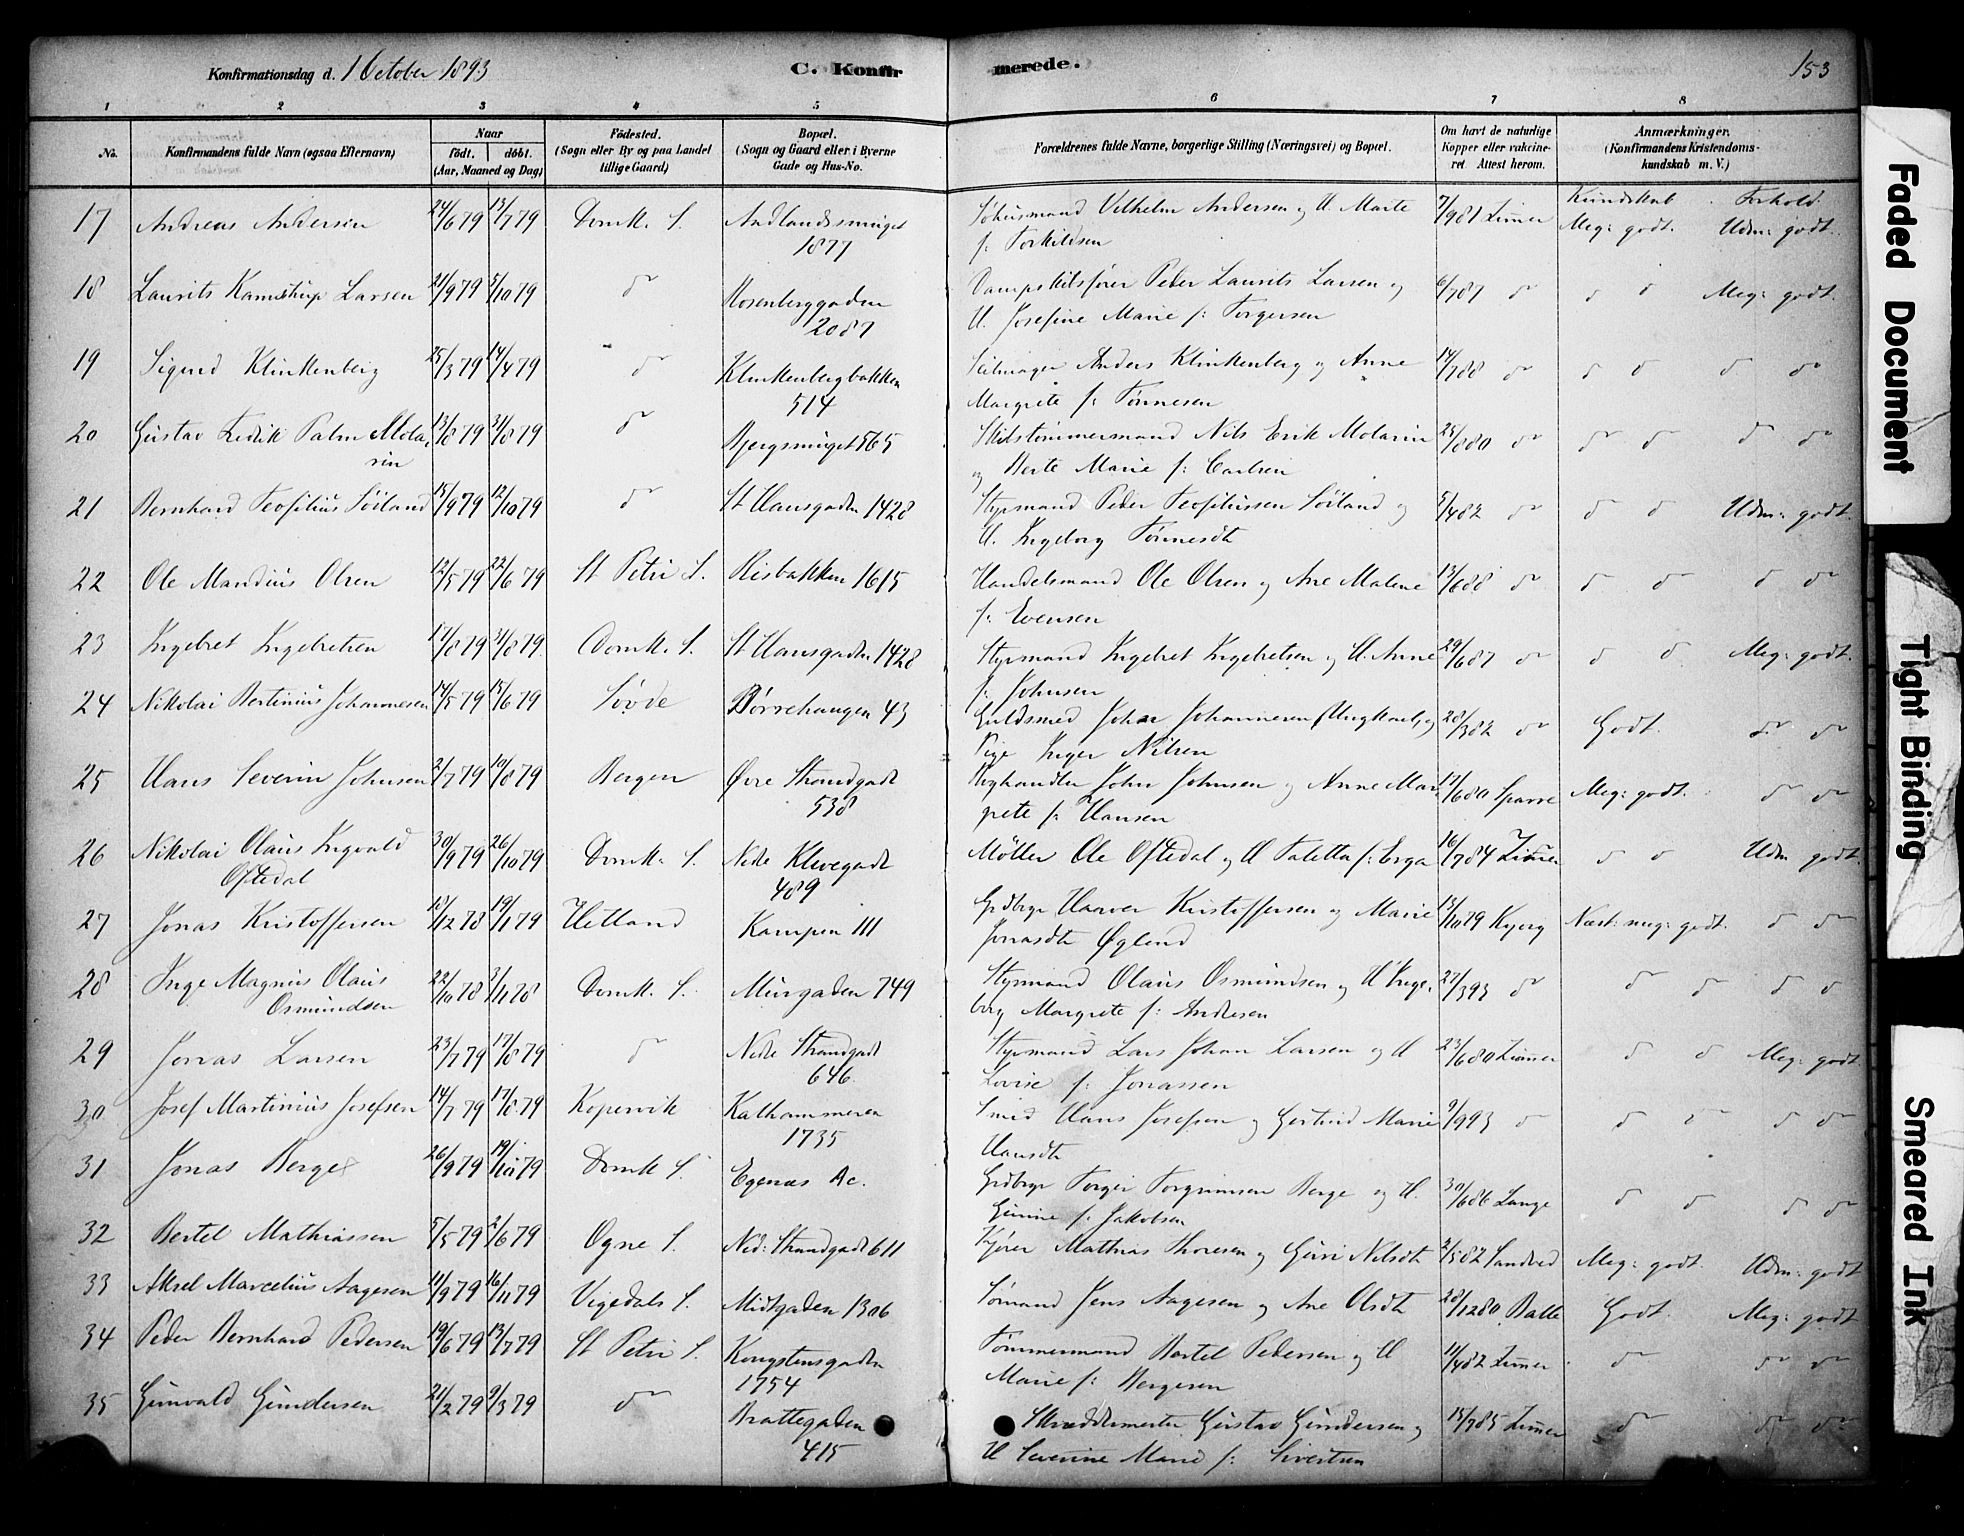 Konfirmationsdag d. 1 October 1893
C. Konfirmerede.
153
1 2 3 4 5 6 7 8
No.
Konfirmandens fulde Navn (ogsaa Efternavn)
Naar
født. døbt.
(Aar, Maaned og Dag)
Fødested.
(Sogn eller By og paa Landet
tillige Gaard)
Bopæl.
(Sogn og Gaard eller i Byerne
Gade og Hus-No.
Forældrenes fulde Navne, borgerlige Stilling (Næringsvei) og Bopæl.
Om havt de naturlige
Kopper eller vakcine-
ret. Attest herom.
Anmærkninger.
(Konfirmandens Kristendoms-
kundskab m. V.)
Kundskab. Forhold.
17 Andreas Andersen 24/6 79 13/7 79 Domk. S. 1877
Vilhelm Andersen og H. Marte
f: Torkildsen 7/9 81 Zimer Meg: godt. Udm: godt.
18 Laurits Kamstrup Larsen 21/9 79 5/10 79 do Rosenberggaden
2087
Dampskibsfører Peder Laurits Larsen og
H. Josefine Marie f: Torgersen 6/7 87 do do do Meg: godt.
19 Sigurd Klinkenberg 25/3 79 14/4 79 do Klinkenbergbakken
514
Anders Klinkenberg og Anne
Margrete f: Tønnesen 14/7 88 do do do do do
20 Gustav Fredrik Palm Mola-
rin 13/8 79 31/8 79 do Bjergsmuget 565
Skibstømmermand Nils Erik Molarin
og Berte Marie f: Carlsen 25/8 80 do do do do do
21 Bernhard Teofilius Söiland 15/9 79 12/10 79 do St Hansgaden 1428
Styrmand Peder Teofiliussen Söiland og
H. Ingeborg Tønnesdt 5/4 82 do do do Udm: godt.
22 Ole Mandius Olsen 12/5 79 22/6 79 St Petri S. Risbakken 1615
Handelsmand Ole Olsen og Ane Malene
f: Evensen 13/6 88 do do do do do
23 Ingebret Ingebretsen 17/8 79 31/8 79 Domk. S. St Hansgaden 1428
Styrmand Ingebret Ingebretsen og H. Anne
f: Johnsen 29/6 87 do do do Meg: godt.
24 Nikolai Bertinius Johannesen 14/5 79 15/6 79 Børrehaugen 43
Guldsmed Johan Johannesen (Ungkarl) og
Pige Inger Nilsen 28/3 82 do Godt. do do
25 Hans Severin Johnsen 2/7 79 10/8 79 Bergen Øvre Strandgade
538
John Johnsen og Anne Mar-
grete f: Hansen 17/6 80 Sparre Meg: godt. do do
26 Nikolai Olaus Ingvald
Oftedal 30/9 79 26/10 79 Domk. S. Nedre Klevegade
489
Möller Ole Oftedal og H Taletta f: Erga 16/7 84 Zimer do do Udm godt.
27 Jonas Kristoffersen 18/12 78 19/1 79 Hetland Kampen 111
Grdbrgr Haaver Kristoffersen og Marie
Jonasdt Øglend 13/10 79 Næst: meg: godt. do do
28 Inge Magnus Olaus
Osmundsen 22/10 78 3/11 78 Domk. S. Murgaden 749
Styrmand Olaus Osmundsen og H Inge-
borg Margrete f: Andresen 27/3 93 do do do do do
29 Jonas Larsen 23/7 79 17/8 79 do Nedre Strandgade
646
Styrmand Lars Johan Larsen og H
Lovise f: Jonassen 23/6 80 Zimer do do Meg: godt
30 Josef Martinius Josefsen 14/7 79 17/8 79 Kopervik Kathammeren
1735
Smed Hans Josefsen og Gertrud Marie
Hansdt 9/9 93 do do do do do
31 Jonas Berge 26/9 79 19/10 79 Domk S. Egenæs
Grdbrgr Torger Torgrimsen Berge og H.
Gurine f: Jakobsen 30/6 86 Lange do do do do
32 Bertel Mathiassen 5/5 79 2/6 79 Ogne S. Ned: Strandgade 611
Kjører Mathias Thoresen og Guri Nilsdt 2/5 82 Sandved Meg: godt. Udm: godt
33 Aksel Marcelius Aagesen 11/9 79 16/11 79 Vigedals S. Midtgaden 1306
Sømand Jens Aagesen og Ane Olsdt 28/12 80 Balle Godt. Meg: godt
34 Peder Bernhard Pedersen 19/6 79 13/7 79 St Petri S. Kongstensgaden
1754
Tømmermand Bertel Pedersen og H
Marie f: Bergesen 11/4 82 Zimer do do do
35 Gunvald Gundersen 21/2 79 9/3 79 do Brattegaden
415
Skræddermester Gustav Gundersen og
H Severine Marie f: Sivertsen 15/7 85 Zimer do do do
Faded Document
Tight Binding
Smeared Ink